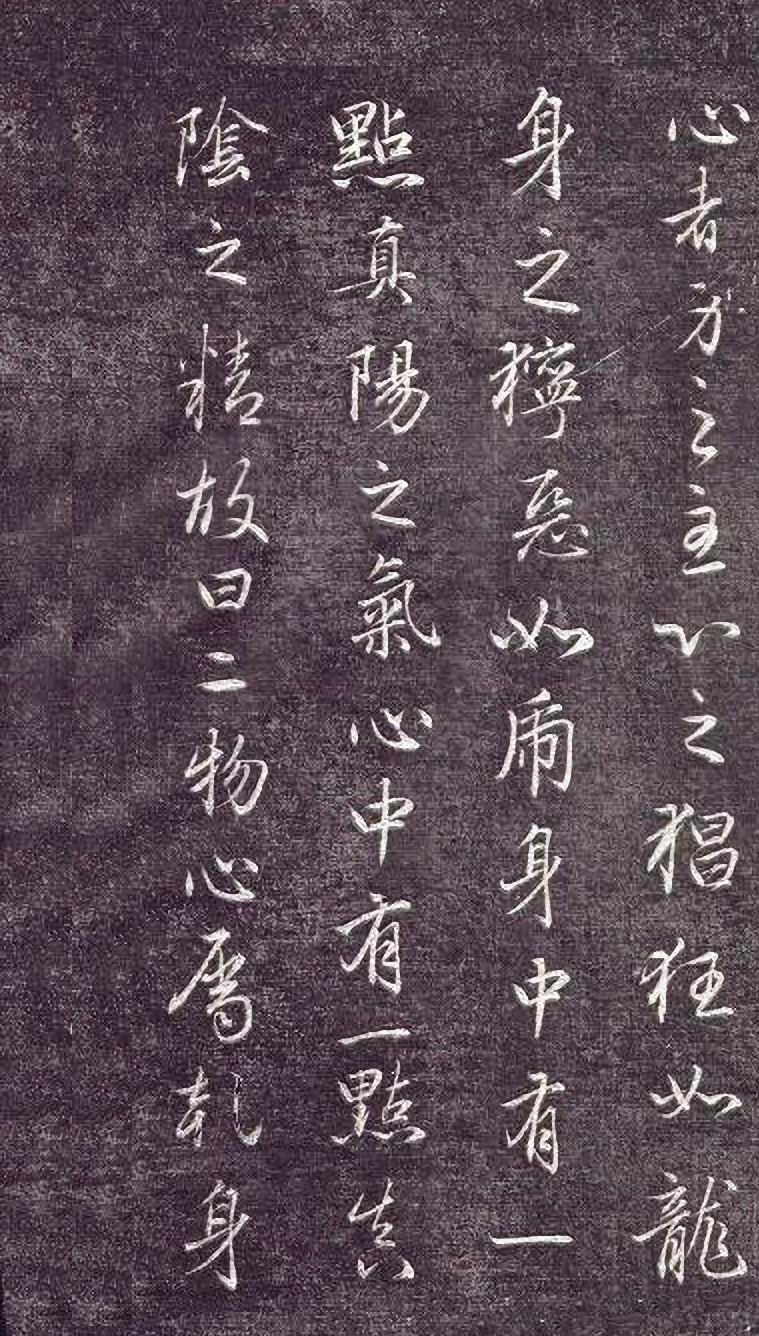 心者身之主心之猖狂如龍
身之獰惡如虎身中有一
點真陽之氣心中有一點真
陰之精故曰二物心屬乾身